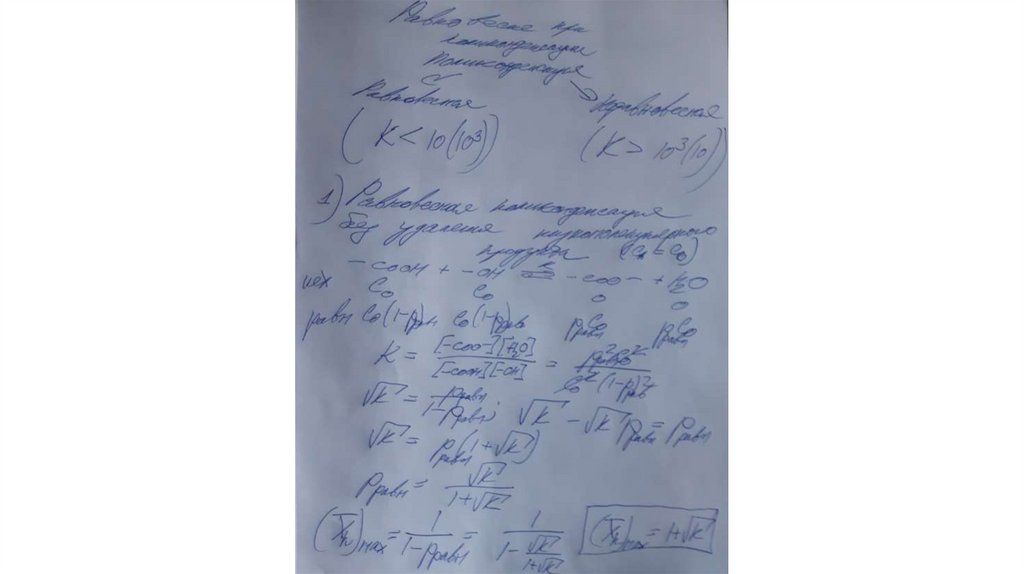 Равновесие при
поликонденсации
Поликонденсация
Равновесная Неравновесная
(K < 10 (10³)) (K > 10³ (10))
1) Равновесная поликонденсация
без удаления низкомолекулярного
продукта
-COOH + -OH ⇌ -COO- + H₂O
исх C₀ C₀ 0 0
равн C₀(1-Pравн) C₀(1-Pравн) PравнC₀ PравнC₀
K = [-COO-][H₂O] / [-COOH][-OH] = P²равнC₀² / C₀²(1-Pравн)²
√K = Pравн / 1-Pравн; √K - √K Pравн = Pравн
√K = Pравн(1+√K)
Pравн = √K / 1+√K
(X̄n)max = 1 / 1-Pравн = 1 / 1 - √K / 1+√K (X̄n)max = 1+√K